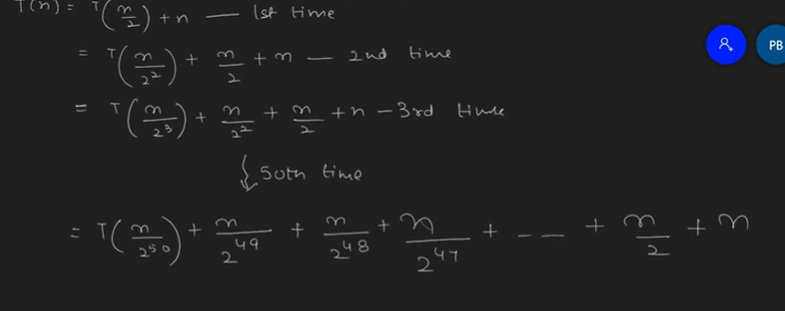 T(n) = T(n/2) + n — 1st time
= T(n/2²) + n/2 + n — 2nd time
= T(n/2³) + n/2² + n/2 + n - 3rd time
50th time
= T(n/2⁵⁰) + n/2⁴⁹ + n/2⁴⁸ + n/2⁴⁷ + - - + n/2 + n
PB